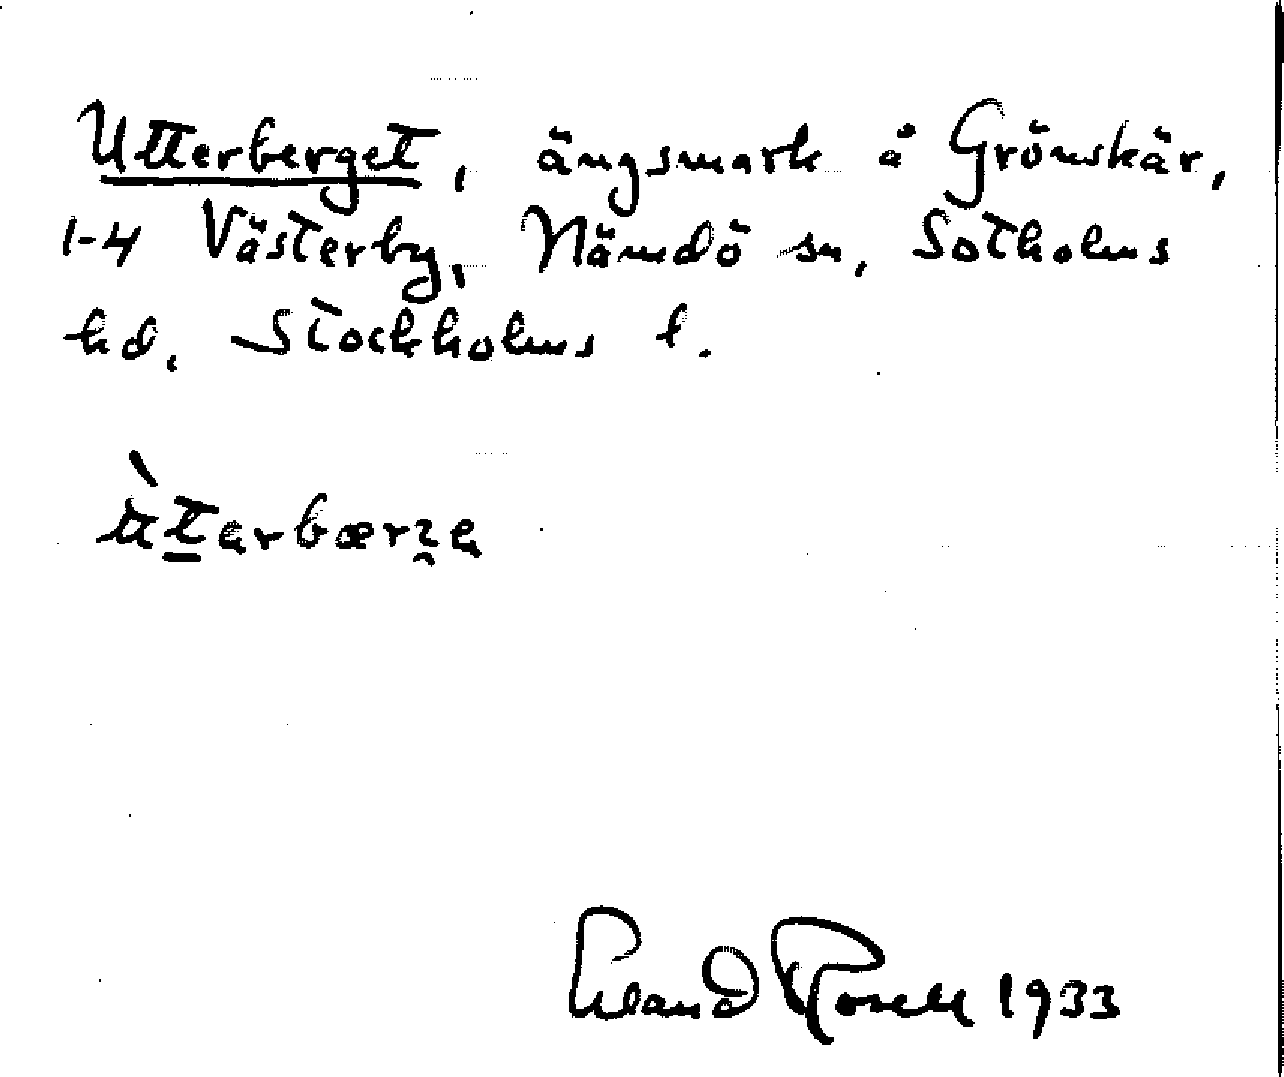 Utterberget, ängsmark å Grönskär,
1-4 Västerby, Nämdö sn, Sotholms
hd, Stockholms l.
Erland Rosell 1933